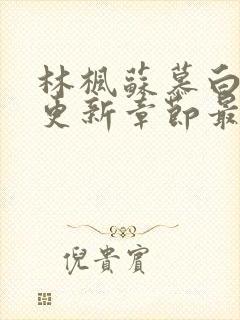 林楓蘇慕白
更新章節最
倪貴賓